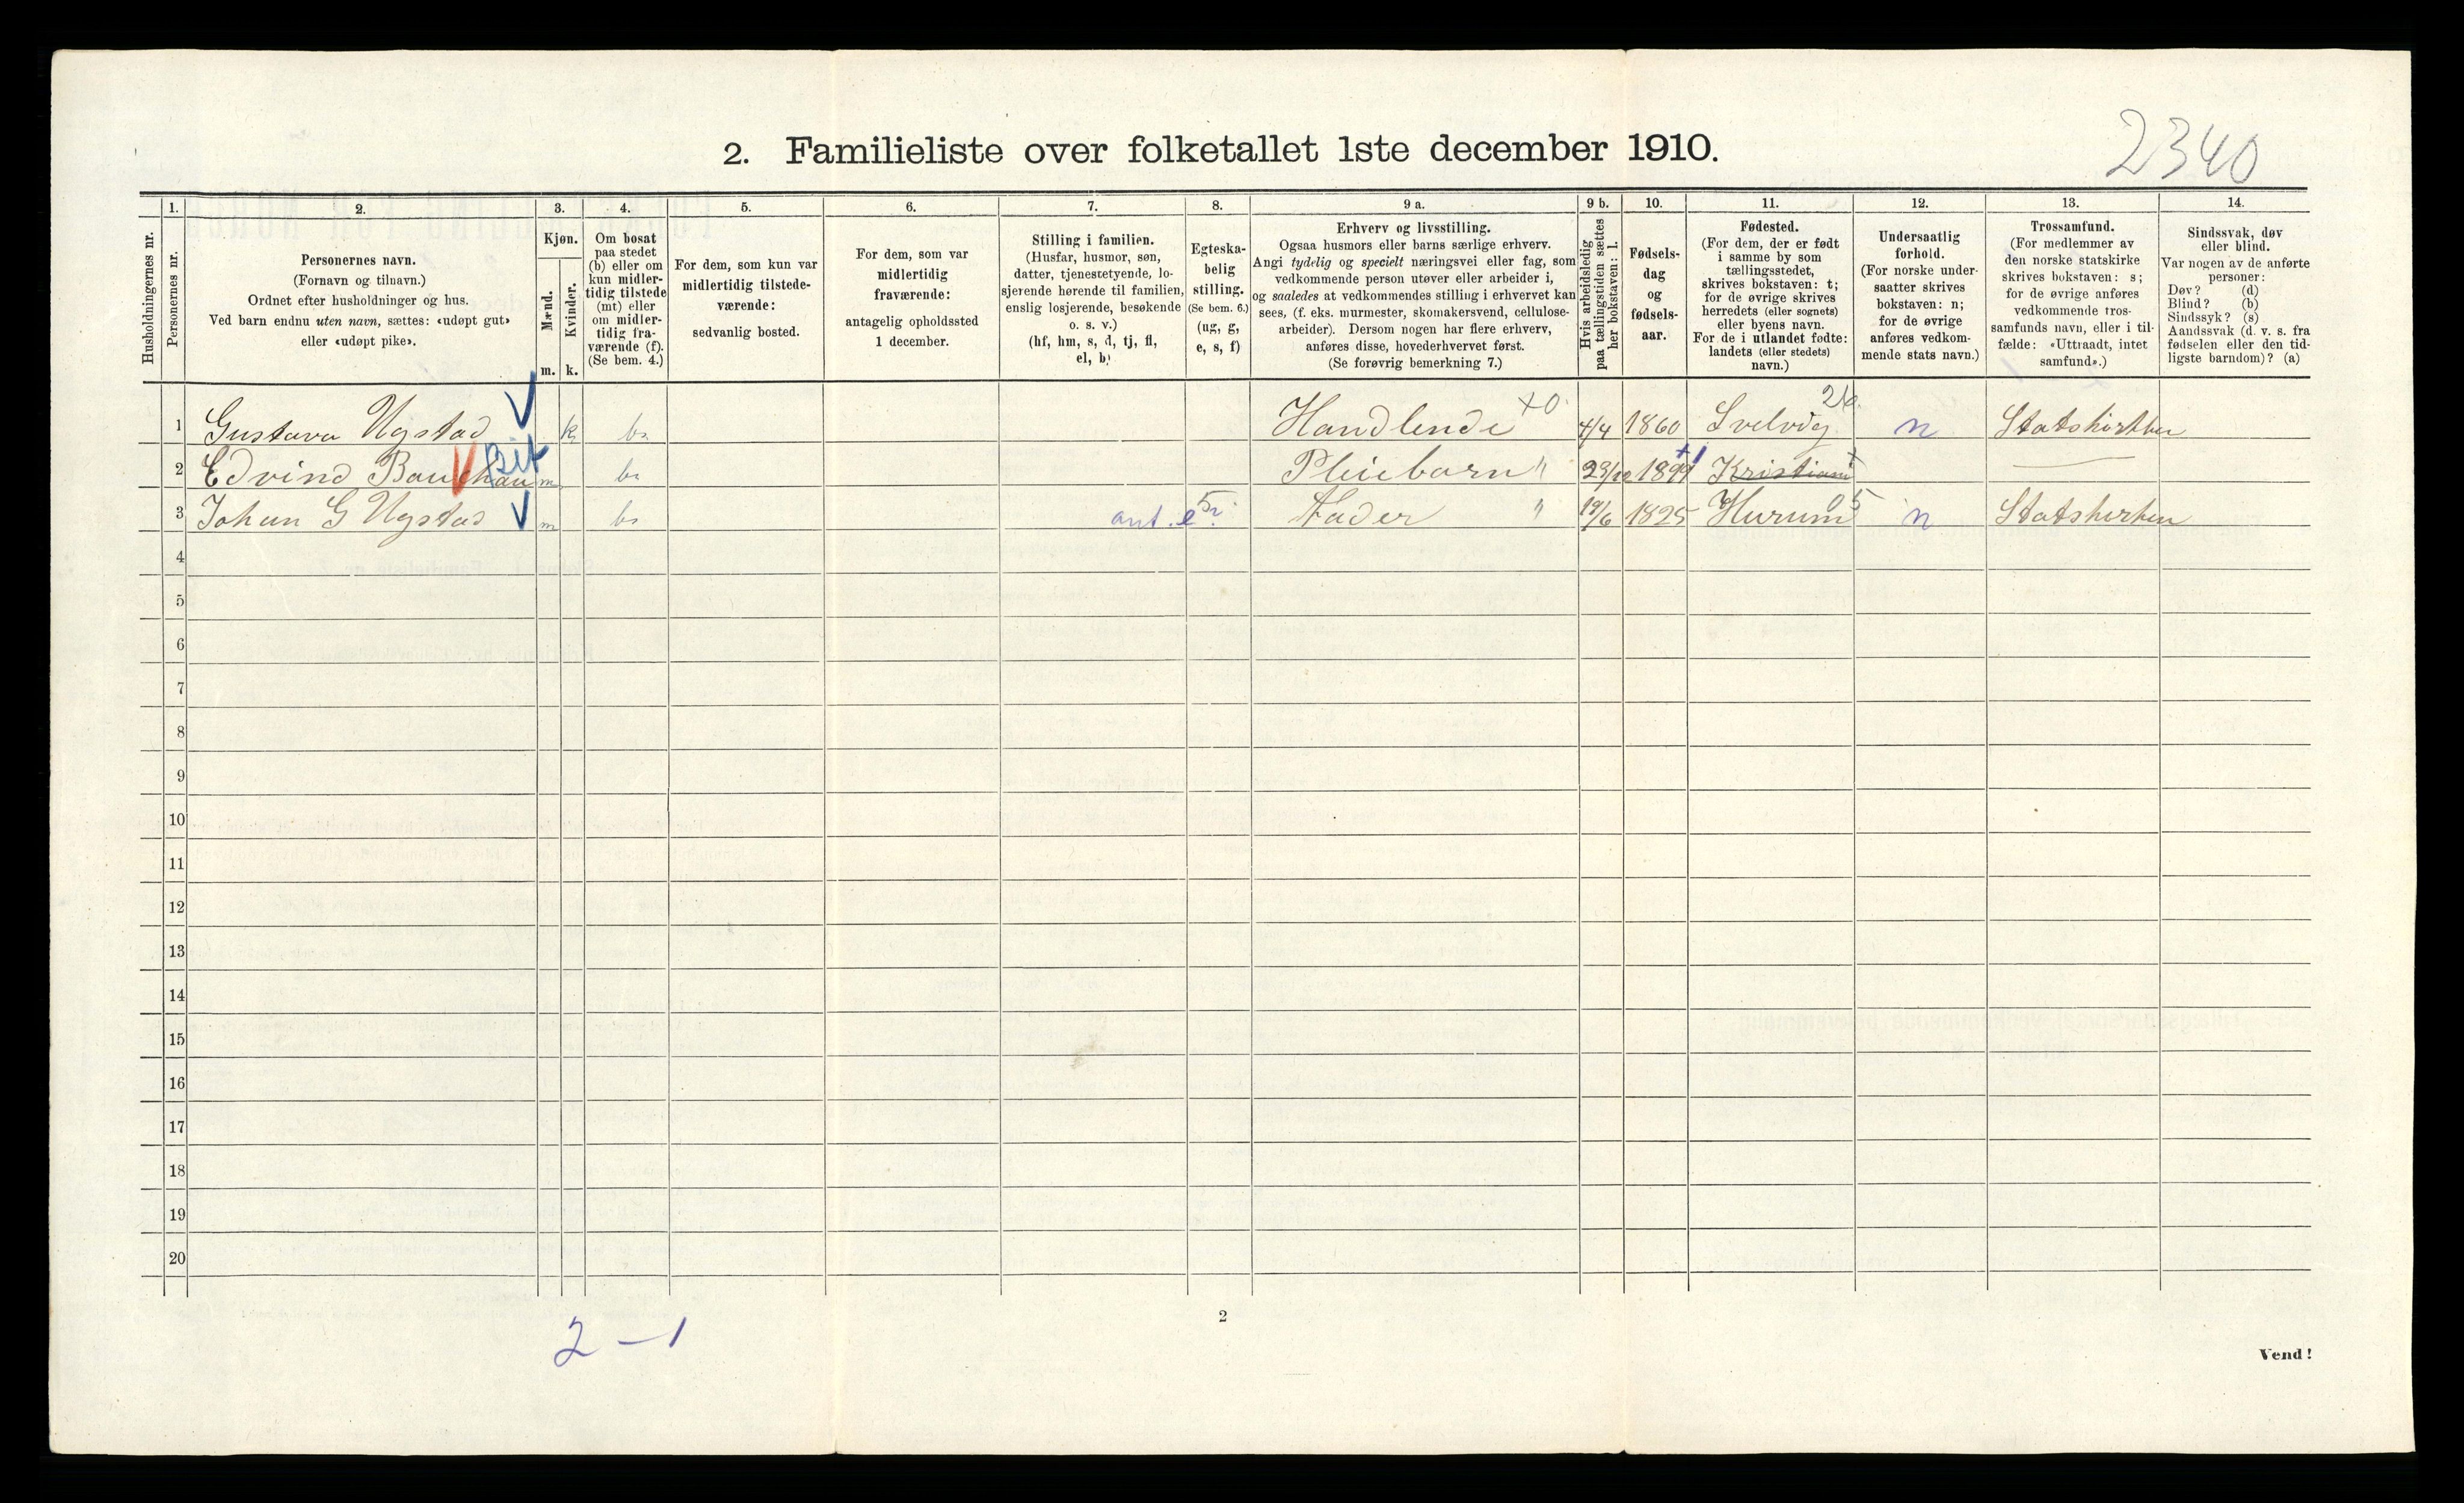 2340
2. Familieliste over folketallet 1ste december 1910.
Husholdningernes nr.
1.
Personernes nr.
2.
Personernes navn.
(Fornavn og tilnavn.)
Ordnet efter husholdninger og hus.
Ved barn endnu uten navn, sættes: «udøpt gut»
eller «udøpt pike».
3.
Kjøn.
Mænd.
Kvinder.
m. k.
4.
Om bosat
paa stedet
(b) eller om
kun midler-
tidig tilstede
(mt) eller
om midler-
tidig fra-
værende (f).
(Se bem. 4.)
5.
For dem, som kun var
midlertidig tilstede-
værende:
sedvanlig bosted.
6.
For dem, som var
midlertidig
fraværende:
antagelig opholdssted
1 december.
7.
Stilling i familien.
(Husfar, husmor, søn,
datter, tjenestetyende, lo-
sjerende hørende til familien,
enslig losjerende, besøkende
o. s. v.)
(hf, hm, s, d, tj, fl,
el, b)
8.
Egteska-
belig
stilling.
(Se bem. 6.)
(ug, g,
e, s, f)
9 a.
Erhverv og livsstilling.
Ogsaa husmors eller barns særlige erhverv.
Angi tydelig og specielt næringsvei eller fag, som
vedkommende person utøver eller arbeider i,
og saaledes at vedkommendes stilling i erhvervet kan
sees, (f. eks. murmester, skomakersvend, cellulose-
arbeider). Dersom nogen har flere erhverv,
anføres disse, hovederhvervet først.
(Se forøvrig bemerkning 7.)
9 b.
Hvis arbeidsledig
paa tællingstiden sættes
her bokstaven: l.
10.
Fødsels-
dag
og
fødsels-
aar.
11.
Fødested.
(For dem, der er født
i samme by som
tællingsstedet,
skrives bokstaven: t;
for de øvrige skrives
herredets (eller sognets)
eller byens navn.
For de i utlandet fødte:
landets (eller stedets)
navn.)
12.
Undersaatlig
forhold.
(For norske under-
saatter skrives
bokstaven: n;
for de øvrige
anføres vedkom-
mende stats navn.)
13.
Trossamfund.
(For medlemmer av
den norske statskirke
skrives bokstaven: s;
for de øvrige anføres
vedkommende tros-
samfunds navn, eller i til-
fælde: «Uttraadt, intet
samfund».)
14.
Sindssvak, døv
eller blind.
Var nogen av de anførte
personer:
Døv? (d)
Blind? (b)
Sindssyk? (s)
Aandssvak (d. v. s. fra
fødselen eller den tid-
ligste barndom)? (a)
1 Gustava Ugstad k b Handlende +0 4/4 1860 Svelvig 26 n
2 Edvind m b Pleiebarn " Kristiani
3 Johan G Ugstad m b ant. e Fader " 19/6 1825 Hurum 05 n
4
5
6
7
8
9
10
11
12
13
14
15
16
17
18
19
20
2 – 1
2
Vend!